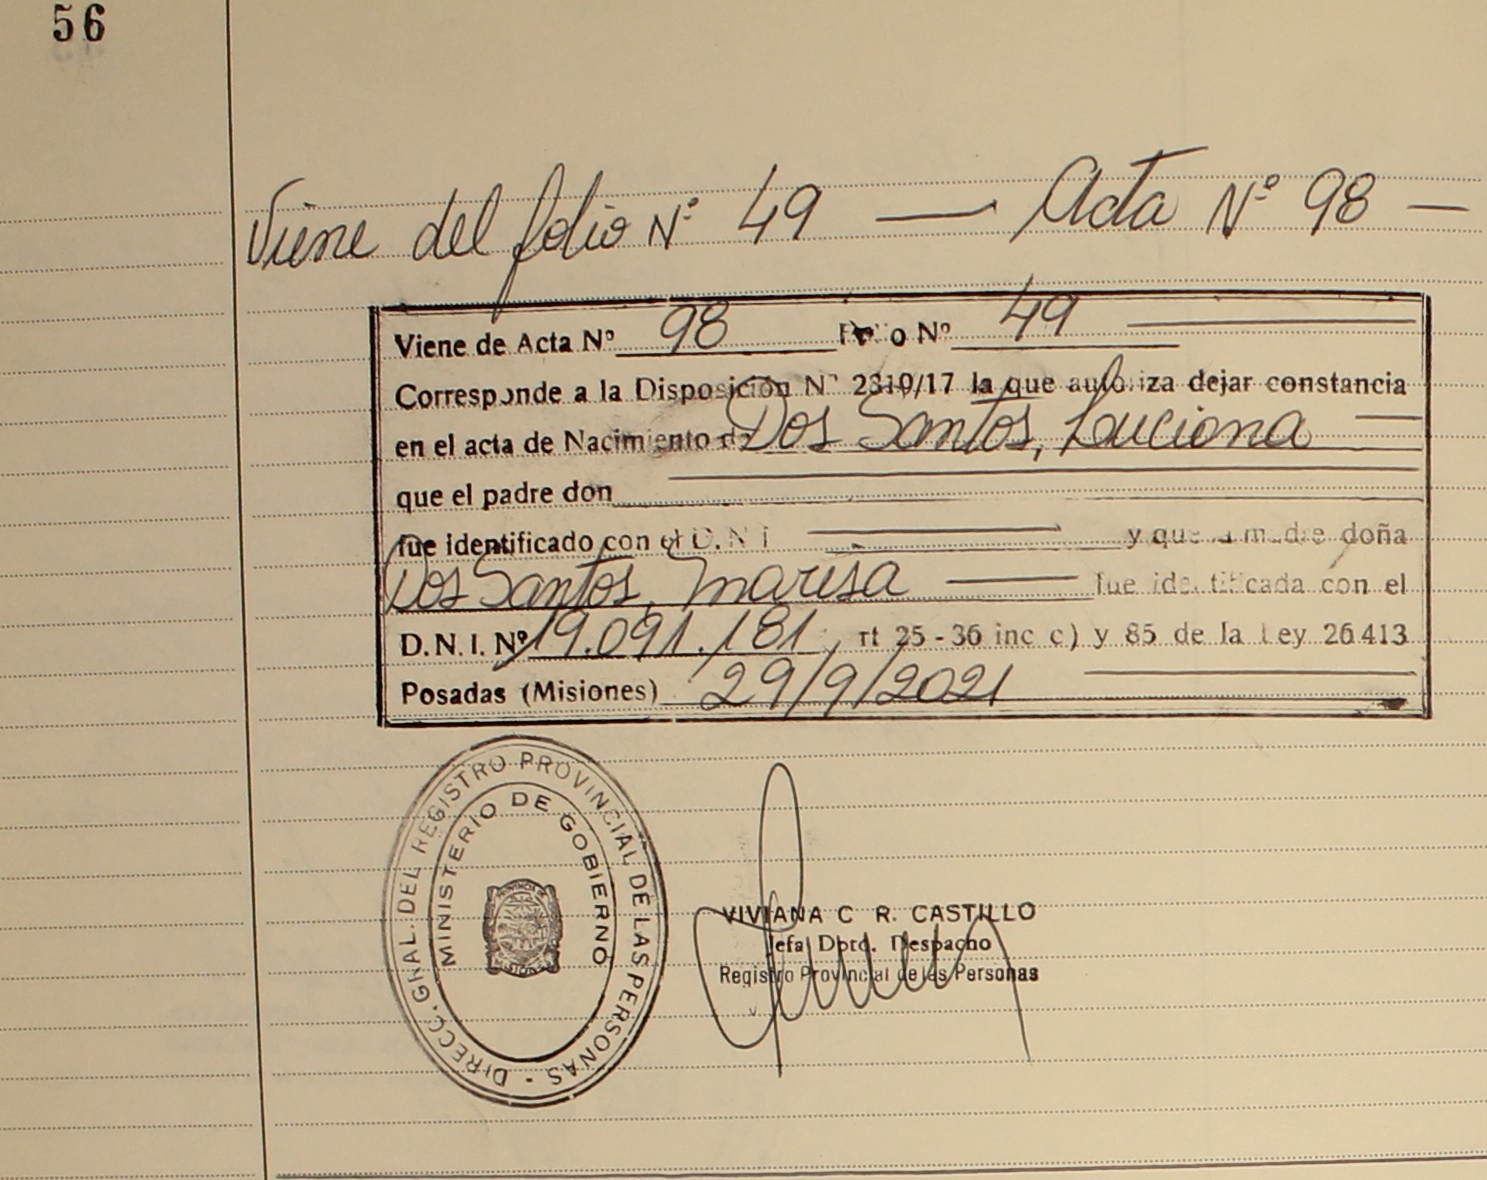 56
Viene del folio Nº 49 — Acta Nº 98 —
Viene de Acta Nº 98 Folio Nº 49
Corresponde a la Disposición Nº 2310/17 la que autoriza dejar constancia
en el acta de Nacimiento de Dos Santos, Luciana
que el padre don
fue identificado con el D.N.I y que la madre doña
Dos Santos, Marisa — fue identificada con el
D.N.I. Nº 19.091.181, rt 25 - 36 inc c) y 85 de la Ley 26413
Posadas (Misiones) 29/9/2021
DIRECC. GRAL. DEL REGISTRO PROVINCIAL DE LAS PERSONAS -
MINISTERIO DE GOBIERNO
PROVINCIA DE
MISIONES
VIVIANA C R. CASTILLO
Jefa Dpto. Despacho
Registro Provincial de las Personas